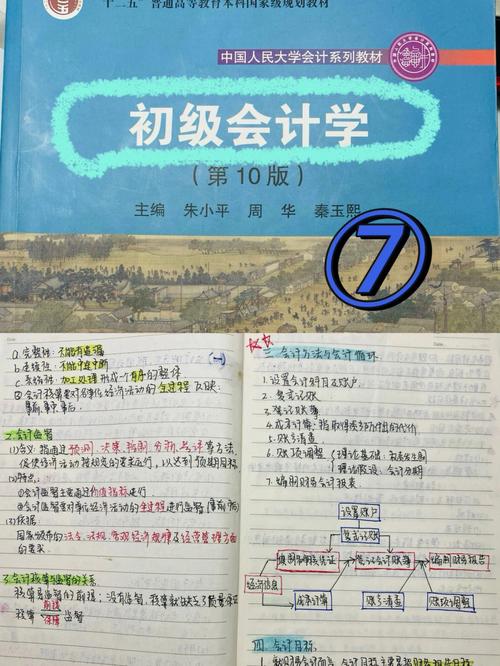 十二五"普通高等教育本科国家级规划教材
中国人民大学会计系列教材
初级会计学
（第10版）
主编 朱小平 周 华 秦玉熙
7
a. 完整性: 不能有遗漏
b. 连续性: 不能中断
c. 系统性: 加工处理 形成一个有序的整体
④会计核算要对各单位经济活动的全过程反映
事前、事中、事后
(一)
2.会计监督
(1)含义: 指通过预测、决策、控制、分析、考评等方法,
促使经济活动按规定的要求运行, 以达到预期目标
(2)特点:
①会计监督主要通过价值指标进行
②会计监督要对单位经济活动的全过程进行监督
(3)依据
国家颁布的法令、法规, 客观经济规律及经营管理方面
的要求
3.会计核算与监督的关系
核算是监督的前提; 没有监督, 核算就缺乏了质量保证
核算 前提 保障 监督
三. 会计方法与会计循环
1. 设置会计科目及账户
2. 复式记账
3. 登记账簿
4. 成本计算: 指取得成本所付出的代价
5. 财产清查
6. 账项调整
理论基础:
理论假设: 会计分期
7. 编制财务会计报表
设置账户
复式记账
填制审核凭证
登记会计账簿
编制财务报告
经济信息
成本计算
财产清查
账项调整
四. 会计目标